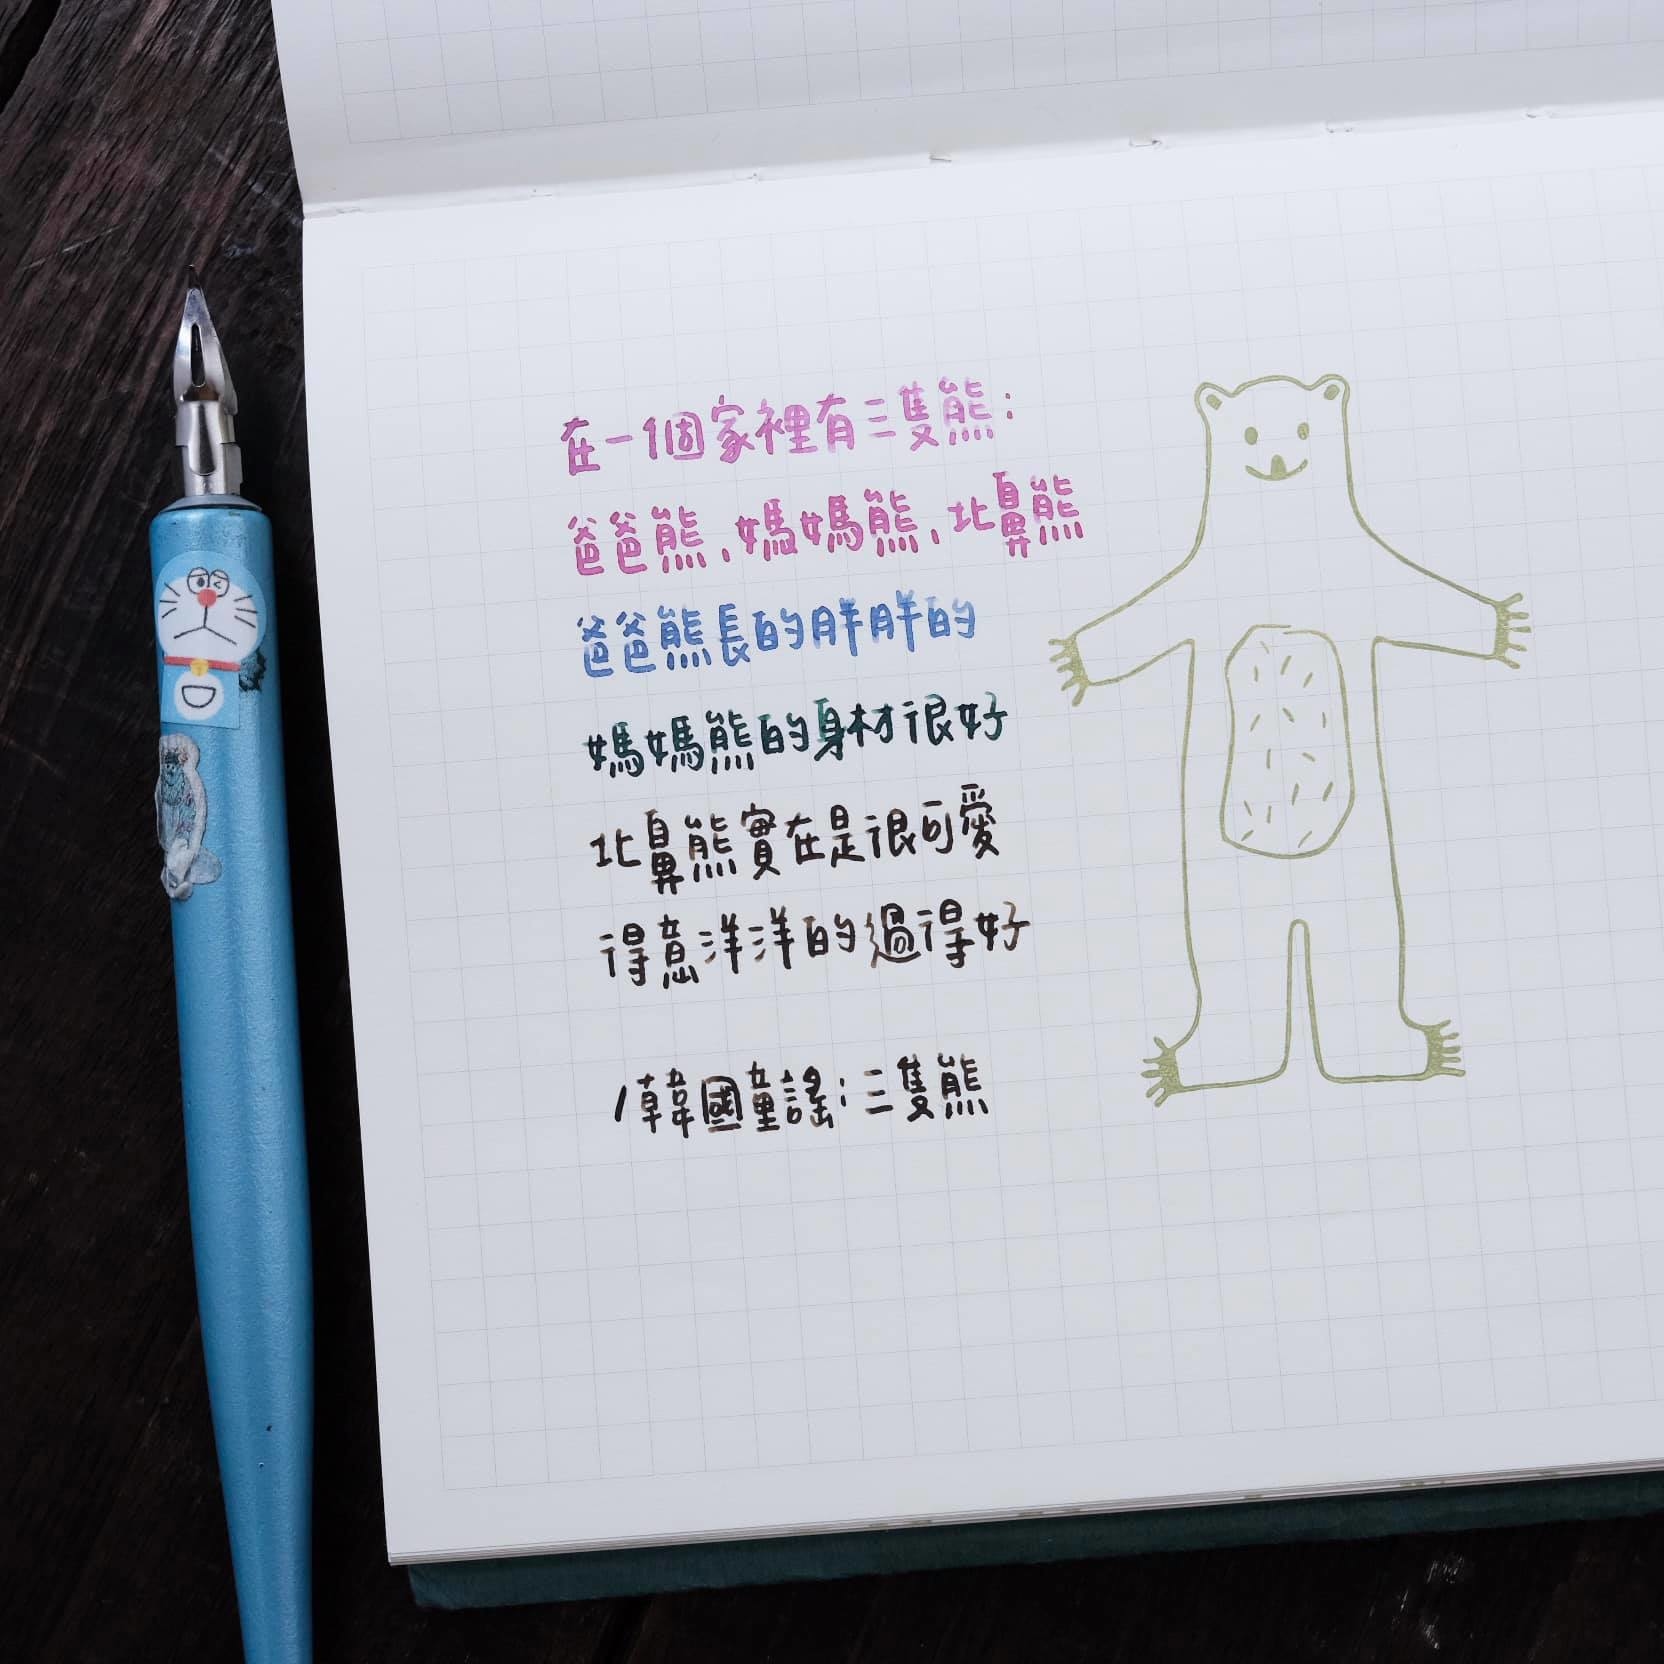 在一個家裡有三隻熊：
爸爸熊、媽媽熊、北鼻熊
爸爸熊長的胖胖的
媽媽熊的身材很好
北鼻熊實在是很可愛
得意洋洋的過得好
/韓國童謠：三隻熊